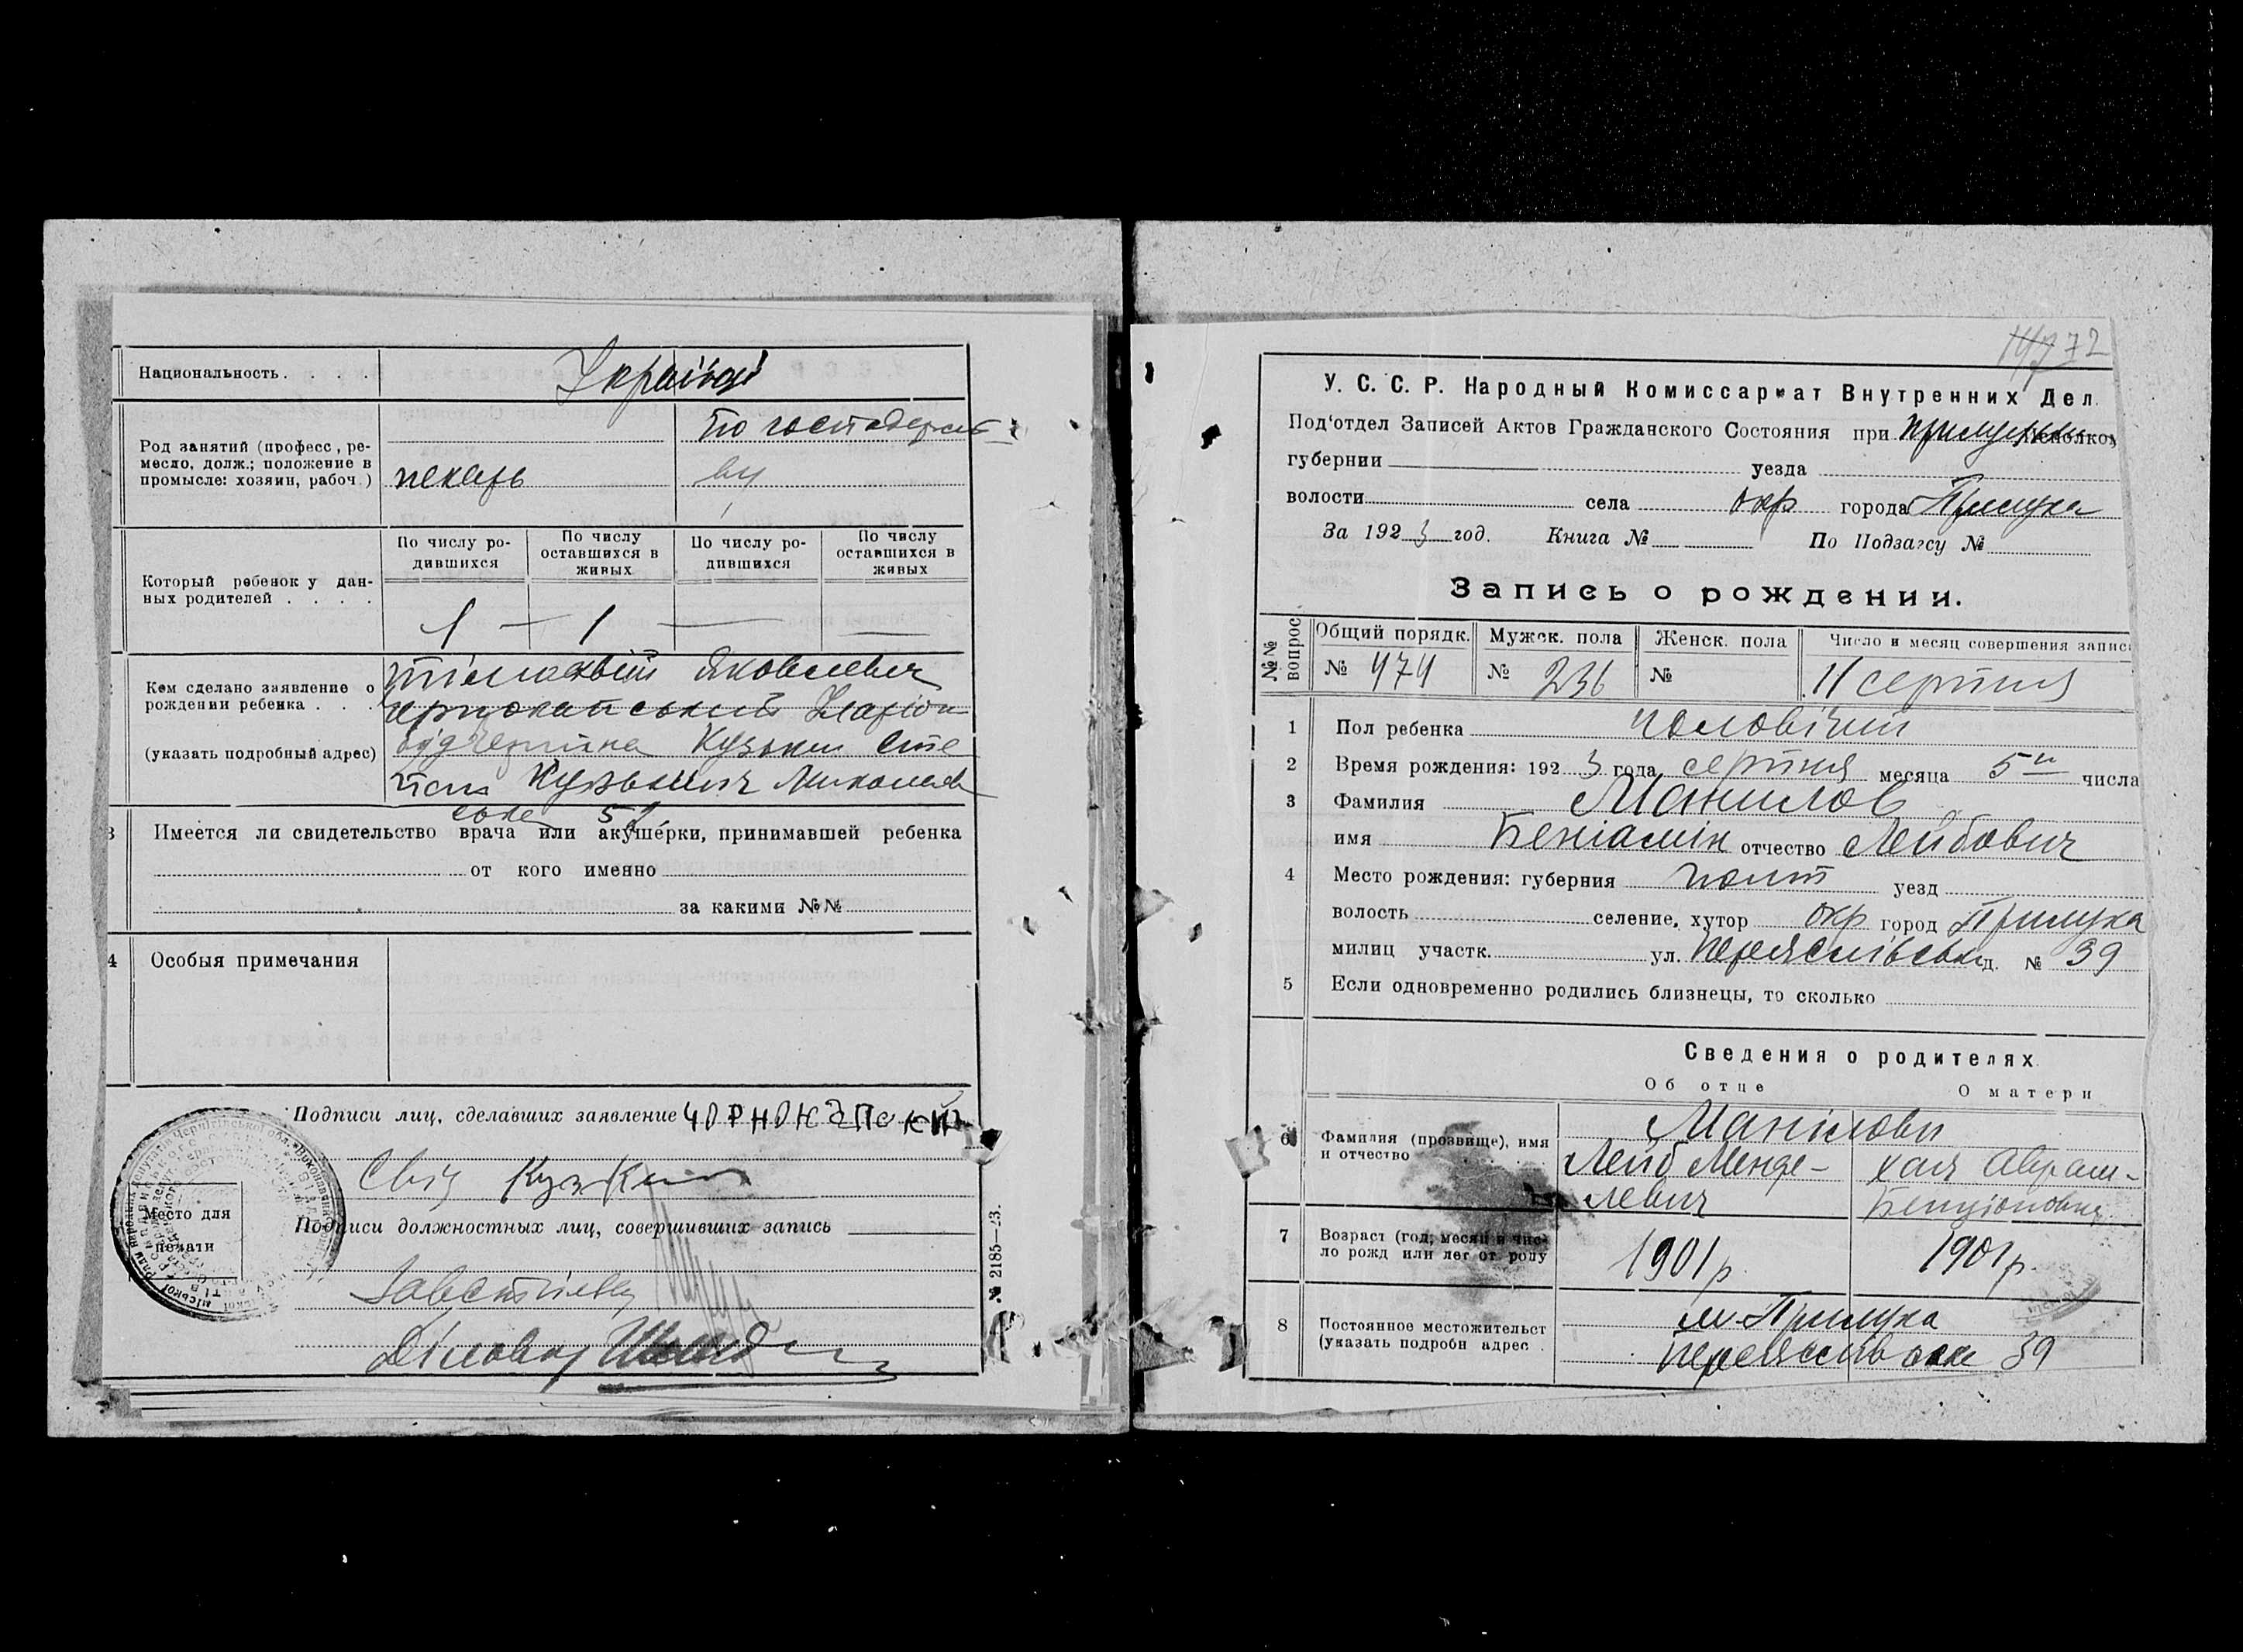 Национальность. . . .
Українці
Род занятий (професс, ре-
месло, долж.; положение в
промысле: хозяин, рабоч )
пекарь
по господарст
ву
Который ребенок у дан-
ных родителей . . . .
По числу ро-
дившихся
По числу
оставшихся в
живых
По числу ро-
дившихся
По числу
оставшихся в
живых
1 — 1 — —
Кем сделано заявление о
рождении ребенка . . .
(указать подробный адрес)
Яковлевич
Кузьмич Миколаев
ська 52
3 Имеется ли свидетельство врача или акушерки, принимавшей ребенка
от кого именно
за какими №№
4 Особыя примечания
Подписи лиц, сделавших заявление ЧОРНОКАПСКИЙ
Свід Кузьк
Подписи должностных лиц, совершивших запись
Место для
печати
Завстолу
Діловод
№ 2185—23.
147 72
У. С. С. Р. Народный Комиссариат Внутренних Дел.
Под'отдел Записей Актов Гражданского Состояния при Прилуцьк. Исполком
губернии уезда
волости села окр города Прилука
За 1923 год. Книга № По Подзагсу №
Запись о рождении.
№№ вопрос
Общий порядк. Мужск. пола Женск. пола Число и месяц совершения запис
№ 474 № 236 № 11 серпня
1 Пол ребенка чоловічий
2 Время рождения: 1923 года серпня месяца 5го числа
3 Фамилия Манилов
имя Беніамін отчество Лейбович
4 Место рождения: губерния Полт уезд
волость селение, хутор окр город Прилука
милиц участк. ул. Переяслівська д. № 39
5 Если одновременно родились близнецы, то сколько
Сведения о родителях
Об отце О матери
6 Фамилия (прозвище), имя
и отчество
Манілови
Лейб Менде-
левич
Хая Абрам-
Бенціоновна
7 Возраст (год, месяц и чис-
ло рожд или лет от роду
1901 р. 1901 р.
8 Постоянное местожительст
(указать подробн адрес .
м. Прилука
Переяслівська 39